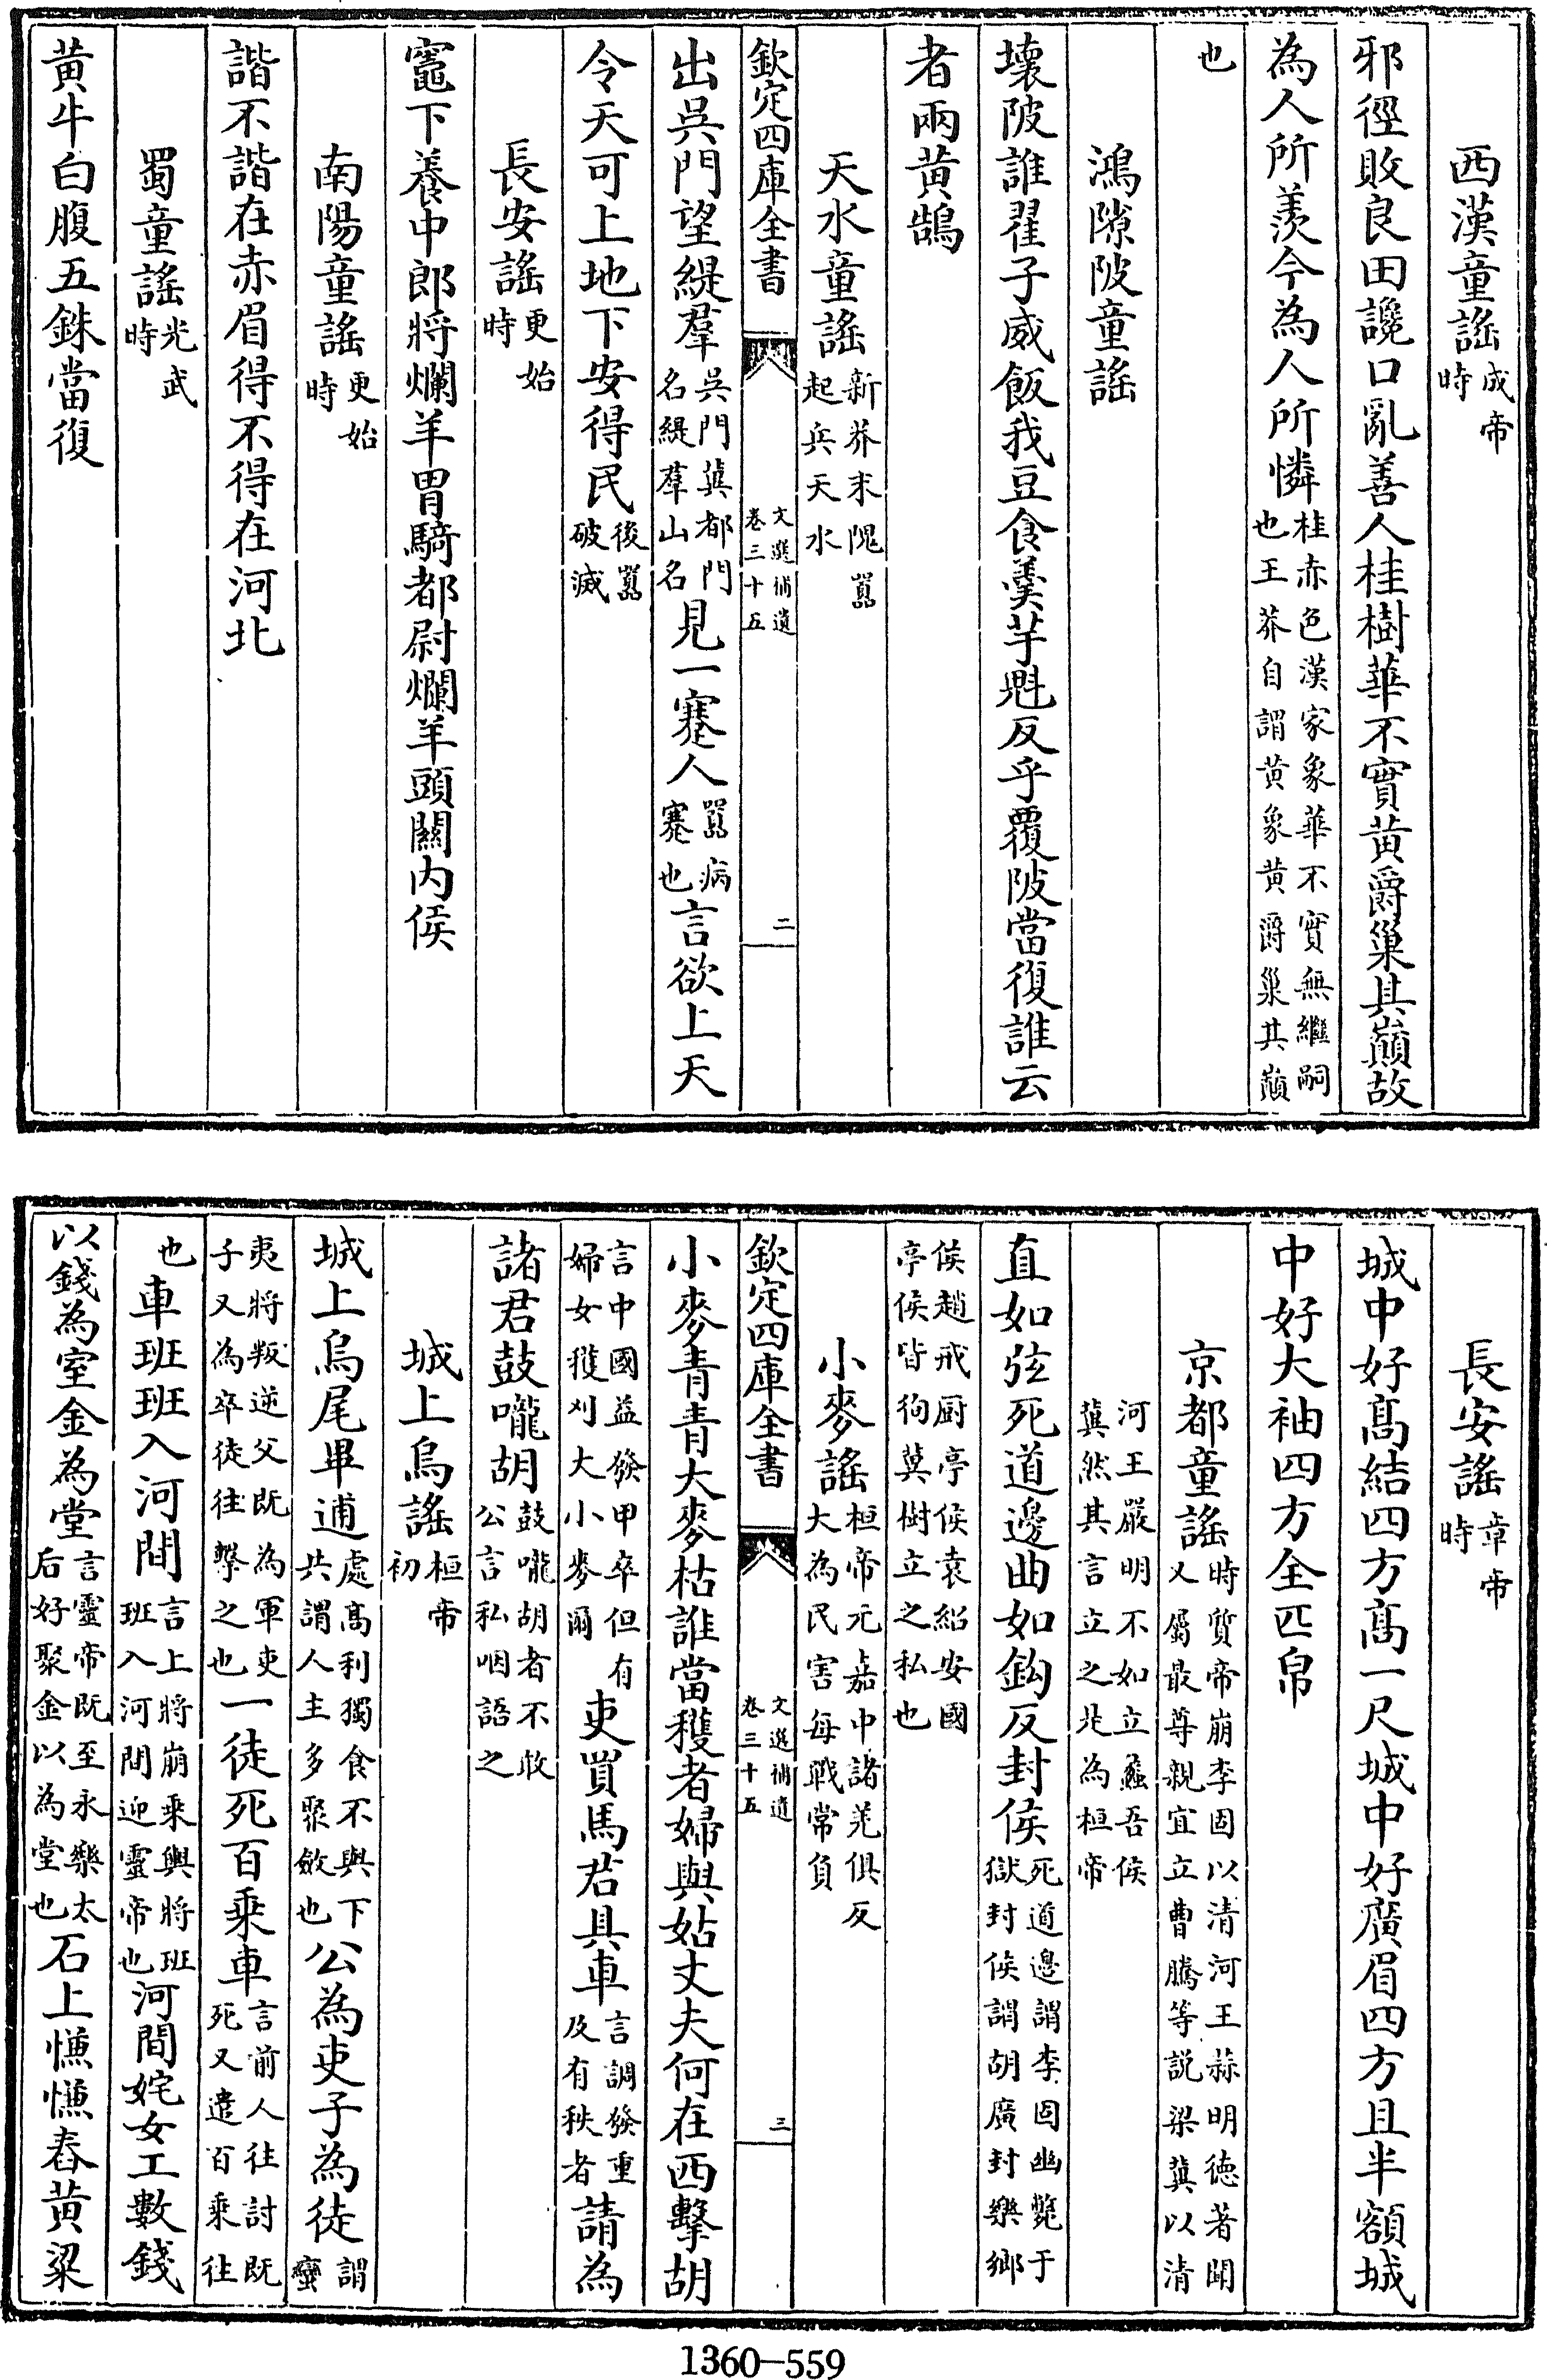 西漢童謠成帝時
邪徑敗良田讒口亂善人桂樹華不實黄爵巢其巔故
為人所羨今為人所憐桂赤色漢家象華不實無繼嗣也王莽自謂黄象黄爵巢其巔
也
鴻隙陂童謠
壞陂誰翟子威飯我豆食羮芋魁反乎覆陂當復誰云
者兩黄鵠
天水童謠新莽末隗囂起兵天水
欽定四庫全書 文選補遺卷三十五 二
出吳門望緹羣吳門冀都門名緹羣山名見一蹇人囂病蹇也言欲上天
令天可上地下安得民後囂破滅
長安謠更始時
竈下養中郎將爛羊胃騎都尉爛羊頭關内侯
南陽童謠更始時
諧不諧在赤眉得不得在河北
蜀童謠光武時
黄牛白腹五銖當復
長安謠章帝時
城中好髙結四方髙一尺城中好廣眉四方且半額城
中好大袖四方全匹帛
京都童謠時質帝崩李固以清河王蒜明德著聞又屬最尊親宜立曹騰等説梁冀以清
河王嚴明不如立蠡吾侯冀然其言立之是為桓帝
直如弦死道邊曲如鈎反封侯死道邊謂李固幽斃于獄封侯謂胡廣封樂鄉
侯趙戒厨亭侯袁紹安國亭侯皆徇冀樹立之私也
小麥謠桓帝元嘉中諸羌俱反大為民害每戰常負
欽定四庫全書 文選補遺卷三十五 三
小麥青青大麥枯誰當穫者婦與姑丈夫何在西擊胡
言中國益發甲卒但有婦女穫刈大小麥爾吏買馬君具車言調發重及有秩者請為
諸君鼓嚨胡鼓嚨胡者不敢公言私咽語之
城上烏謠桓帝初
城上烏尾畢逋處髙利獨食不與下共謂人主多聚斂也公為吏子為徒謂蠻
夷將叛逆父既為軍吏子又為卒徒往擊之也一徒死百乘車言前人往討既死又遣百乘往
也車班班入河間言上將崩乘輿將班班入河間迎靈帝也河間姹女工數錢
以錢為室金為堂言靈帝既至永樂太后好聚金以為堂也石上慊慊舂黄粱
1360—559